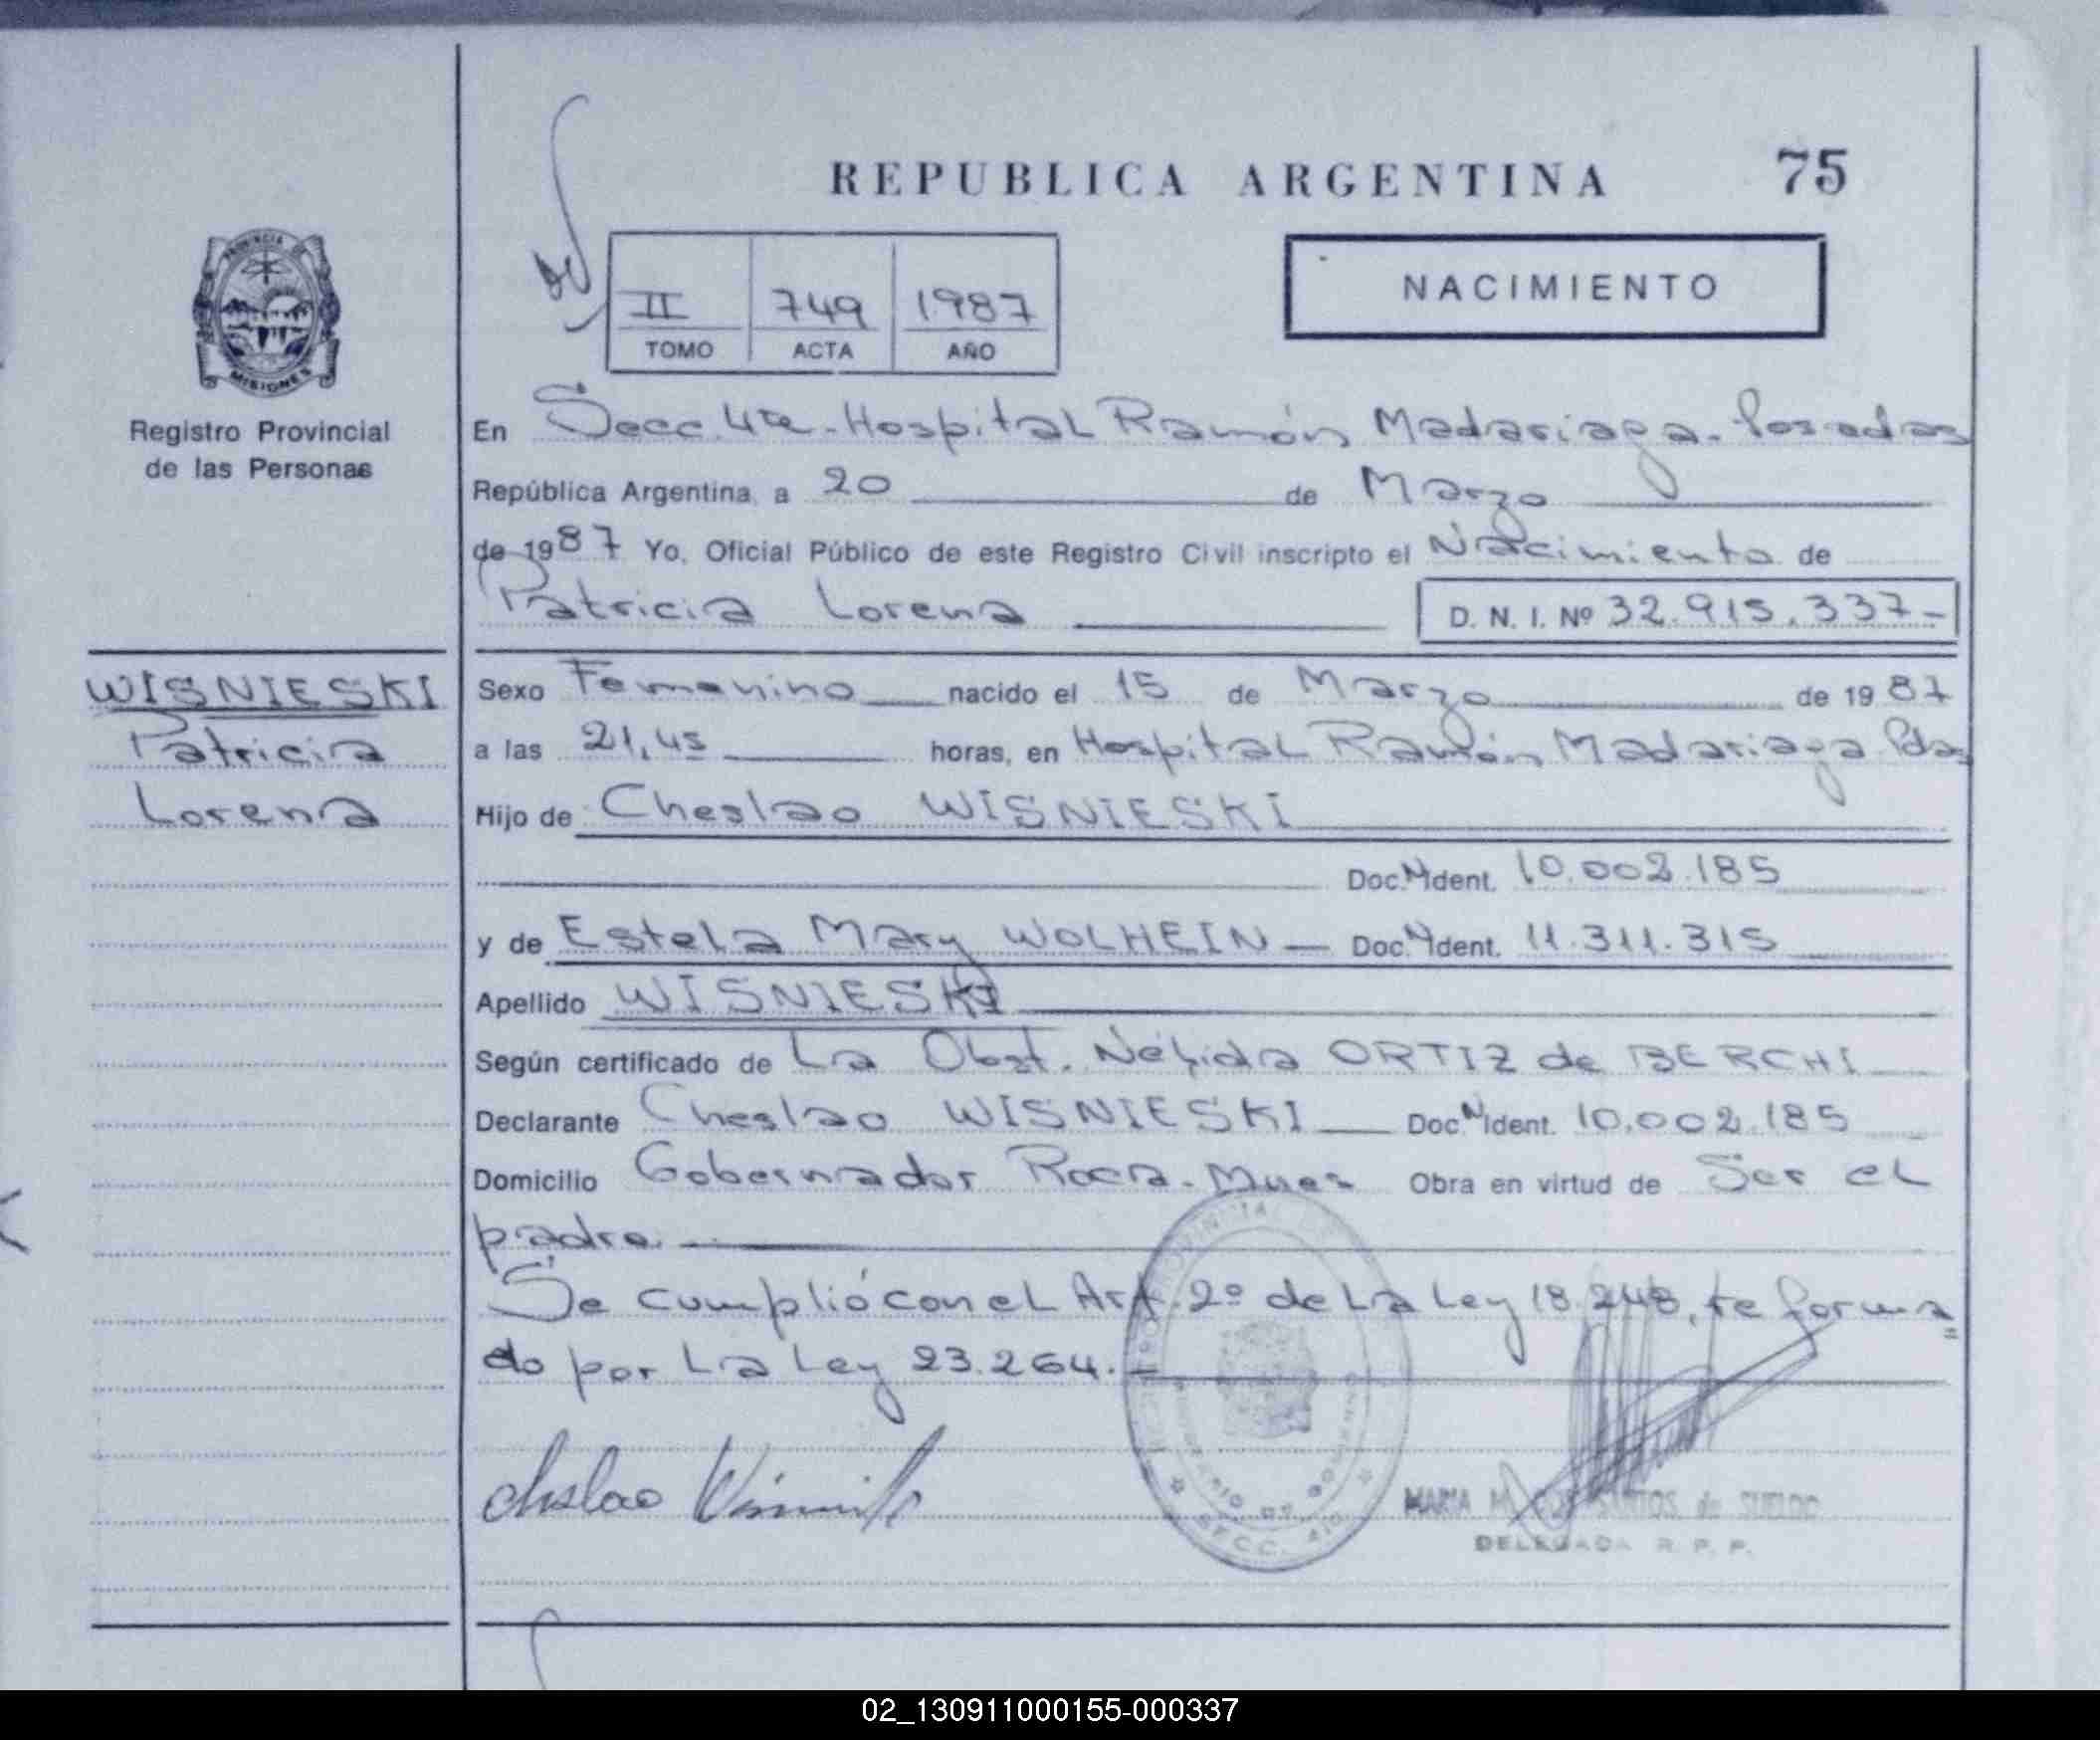 REPUBLICA ARGENTINA 75
PROVINCIA DE
MISIONES
Registro Provincial
de las Personas
II 749 1987
TOMO ACTA AÑO
NACIMIENTO
En Secc. 4ta. Hospital Ramón Madariaga. Posadas
República Argentina, a 20 de Marzo
de 1987 Yo, Oficial Público de este Registro Civil inscripto el Nacimiento de
Patricia Lorena D. N. I. Nº 32.915.337-
WISNIESKI
Patricia
Lorena
Sexo Femenino nacido el 15 de Marzo de 1987
a las 21,45 horas, en Hospital Ramón Madariaga Pdas
Hijo de Cheslao WISNIESKI
Doc. N Ident. 10.002.185
y de Estela Mary WOLHEIN — Doc. N Ident. 11.311.315
Apellido WISNIESKI
Según certificado de La Obst. Nélida ORTIZ de BERCHI
Declarante Cheslao WISNIESKI Doc. N Ident. 10.002.185
Domicilio Gobernador Roca - Mnes Obra en virtud de Ser el
padre.
Se cumplió con el Art. 2º de La Ley 18.248, reforma=
do por La Ley 23.264.=
MARIA M. DOS SANTOS de SUELDO
DELEGADA R. P. P.
SECC. 4ta
02_130911000155-000337